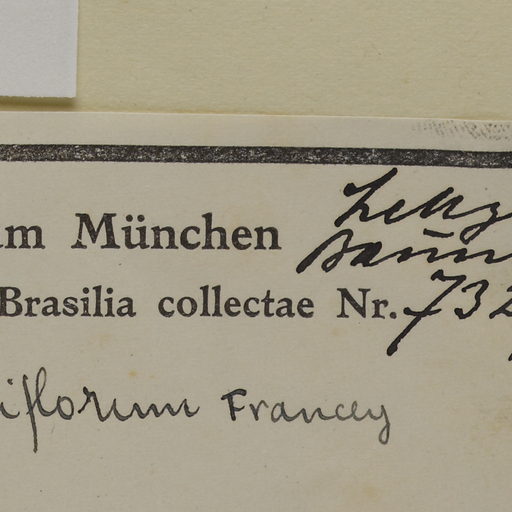 am München
Brasilia collectae Nr. 732
iflorum Francey